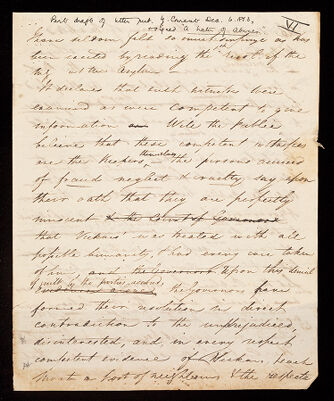 Part draft of letter pub. Y. Courant Dec. 6. 1813,
& signed A hater of Abuses.
VI
I have seldom felt so much surprise as has
been excited by reading the " of the
 at the Asylum
It declares that such witnesses were
examined as were competent to give
information Will the Public
believe that these competent witnesses
are the Keepers themselves the persons accused
of fraud neglect & cruelty say upon
their oath that they are perfectly
innocent & the Court of Governors
that Vickers was treated with all
possible humanity, & had every care taken
of him, and the Governors Upon this denial
of guilt by the parties accused,
 the Governors have
formed their resolution in direct
contradiction to the unprejudiced,
disinterested, and in every respect
competent evidence of
 a host of neighbours & the respecta